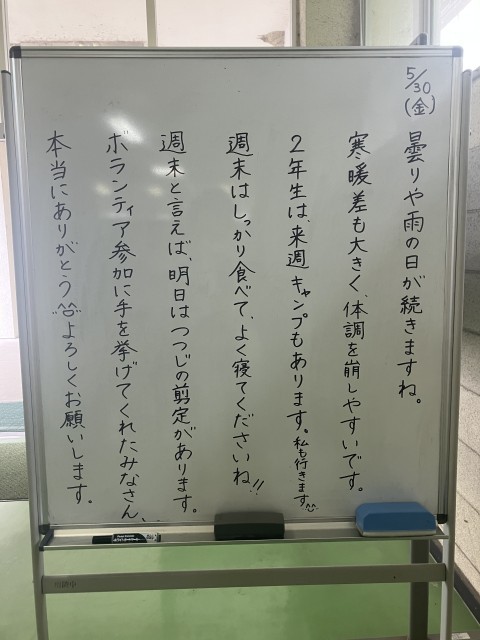 5/30(金)
曇りや雨の日が続きますね。
寒暖差も大きく、体調を崩しやすいです。
2年生は、来週キャンプもあります。私も行きます^^
週末はしっかり食べて、よく寝てくださいね!!
週末と言えば、明日はつつじの剪定があります。
ボランティア参加に手を挙げてくれたみなさん、
本当にありがとう^^よろしくお願いします。